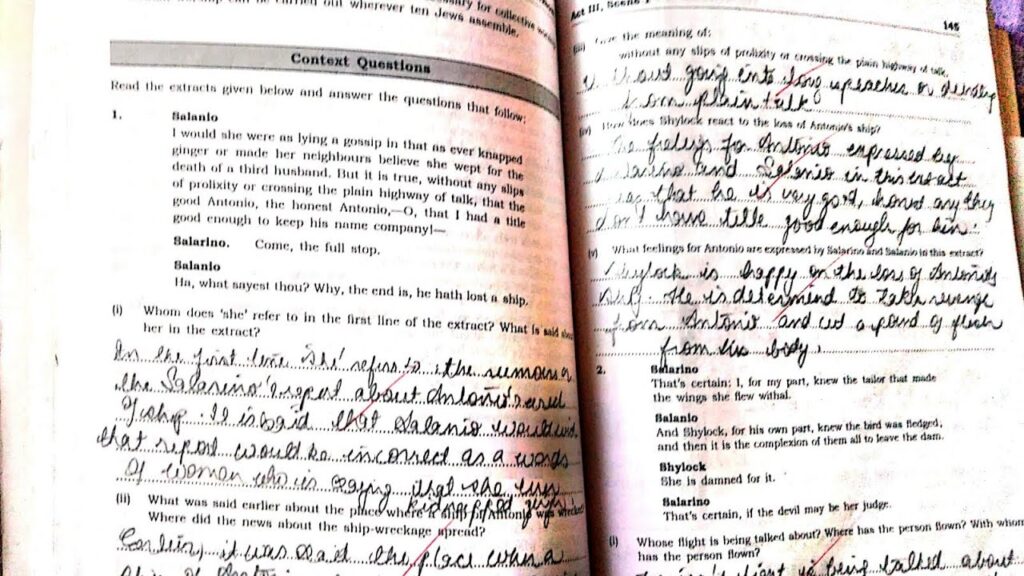 ssary for collective wor
worship can be carried out wherever ten Jews assemble.
Context Questions
Read the extracts given below and answer the questions that follow:
1. Salanio
I would she were as lying a gossip in that as ever knapped
ginger or made her neighbours believe she wept for the
death of a third husband. But it is true, without any slips
of prolixity or crossing the plain highway of talk, that the
good Antonio, the honest Antonio,—O, that I had a title
good enough to keep his name company!—
Salarino. Come, the full stop.
Salanio
Ha, what sayest thou? Why, the end is, he hath lost a ship.
(i) Whom does 'she' refer to in the first line of the extract? What is said about
her in the extract?
In the first line 'she' refers to the
the Salarino's report about Antonio's
of ship. It is said that Salanio would
that report would be incorrect as a words
of woman who is saying that she
(ii) What was said earlier about the place where a ship of Antonio was wrecked?
Where did the news about the ship-wreckage spread?
Earlier, it was said the place was a
Act III, Scene 1
145
(iii) Give the meaning of:
without any slips of prolixity or crossing the plain highway of talk.
without going into long speaches or
from plain talk
(iv) How does Shylock react to the loss of Antonio's ship?
The for Antonio expressed by
Salarino and Salanio in this extract
that he is very good, honest
don't have title good enough for him.
(v) What feelings for Antonio are expressed by Salarino and Salanio in this extract?
Shylock is happy on the loss of Antonio's
ship. He is determind to take revenge
from Antonio and cut a pound of flesh
from his body.
2. Salarino
That's certain; I, for my part, knew the tailor that made
the wings she flew withal.
Salanio
And Shylock, for his own part, knew the bird was fledged;
and then it is the complexion of them all to leave the dam.
Shylock
She is damned for it.
Salarino
That's certain, if the devil may be her judge.
(i) Whose flight is being talked about? Where has the person flown? With whom
has the person flown?
flight is being talked about